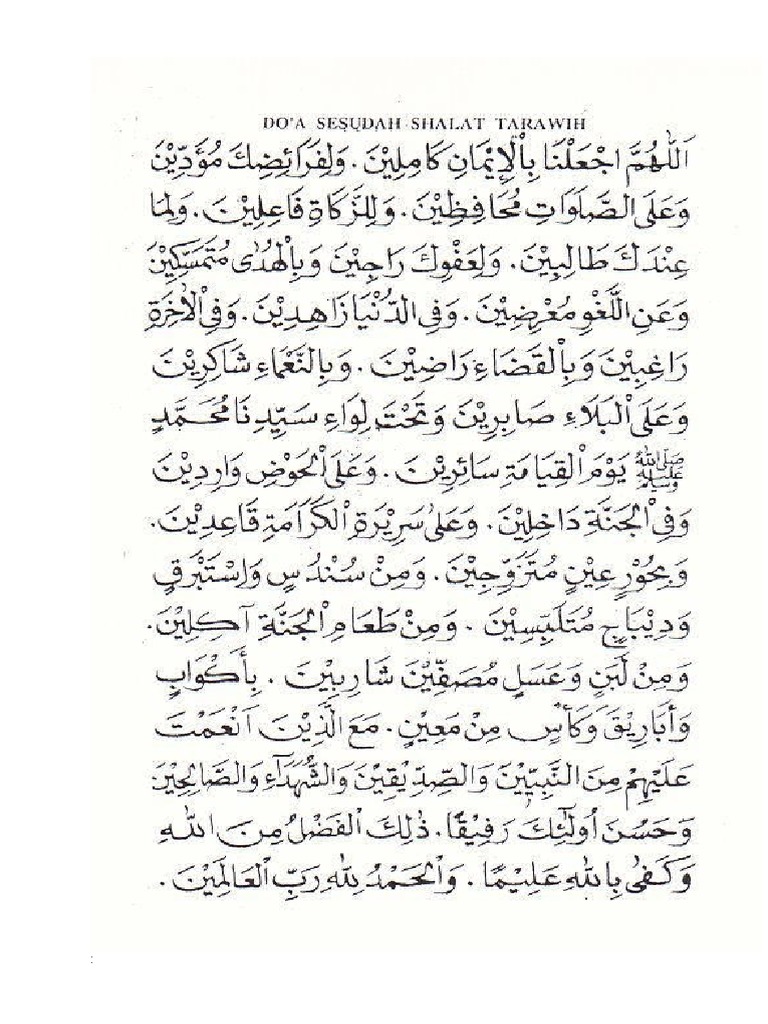 DO'A SESUDAH SHALAT TARAWIH
اَللّٰهُمَّ اجْعَلْنَا بِاْلإِيْمَانِ كَامِلِيْنَ. وَلِفَرَائِضِكَ مُؤَدِّيْنَ
وَعَلَى الصَّلَوَاتِ مُحَافِظِيْنَ. وَلِلزَّكَاةِ فَاعِلِيْنَ. وَلِمَا
عِنْدَكَ طَالِبِيْنَ. وَلِعَفْوِكَ رَاجِيْنَ وَبِالْهُدٰى مُتَمَسِّكِيْنَ
وَعَنِ اللَّغْوِ مُعْرِضِيْنَ. وَفِى الدُّنْيَا زَاهِدِيْنَ. وَفِى اْلاٰخِرَةِ
رَاغِبِيْنَ وَبِالْقَضَاءِ رَاضِيْنَ. وَبِالنَّعْمَاءِ شَاكِرِيْنَ
وَعَلَى الْبَلَاءِ صَابِرِيْنَ وَتَحْتَ لِوَاءِ سَيِّدِنَا مُحَمَّدٍ
صَلَّى اللهُ عَلَيْهِ وَسَلَّمَ يَوْمَ الْقِيَامَةِ سَائِرِيْنَ. وَعَلَى الْحَوْضِ وَارِدِيْنَ
وَفِى الْجَنَّةِ دَاخِلِيْنَ. وَعَلٰى سَرِيْرَةِ الْكَرَامَةِ قَاعِدِيْنَ.
وَبِحُوْرٍ عِيْنٍ مُتَزَوِّجِيْنَ. وَمِنْ سُنْدُسٍ وَاِسْتَبْرَقٍ
وَدِيْبَاجٍ مُتَلَبِّسِيْنَ. وَمِنْ طَعَامِ الْجَنَّةِ آكِلِيْنَ.
وَمِنْ لَبَنٍ وَعَسَلٍ مُصَفِّيْنَ شَارِبِيْنَ. بِأَكْوَابٍ
وَأَبَارِيْقَ وَكَأْسٍ مِنْ مَعِيْنٍ. مَعَ الَّذِيْنَ اَنْعَمْتَ
عَلَيْهِمْ مِنَ النَّبِيِّيْنَ وَالصِّدِّيْقِيْنَ وَالشُّهَدَآءِ وَالصَّالِحِيْنَ
وَحَسُنَ اُولٰئِكَ رَفِيْقًا. ذٰلِكَ الْفَضْلُ مِنَ اللهِ
وَكَفٰى بِاللهِ عَلِيْمًا. وَالْحَمْدُ لِلّٰهِ رَبِّ الْعَالَمِيْنَ.